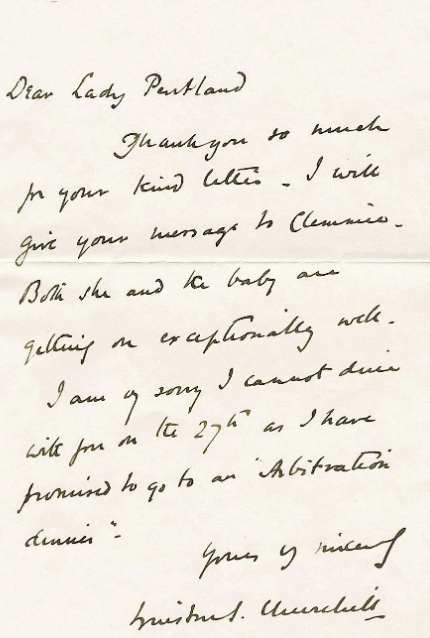 Dear Lady Pentland
Thank you so much
for your kind letter - I will
give your message to Clemmie.
Both she and the baby are
getting on exceptionally well.
I am vy sorry I cannot dine
with you on the 27th as I have
promised to go to an "Arbitration
dinner".
Yours vy sincerely
Winston S. Churchill